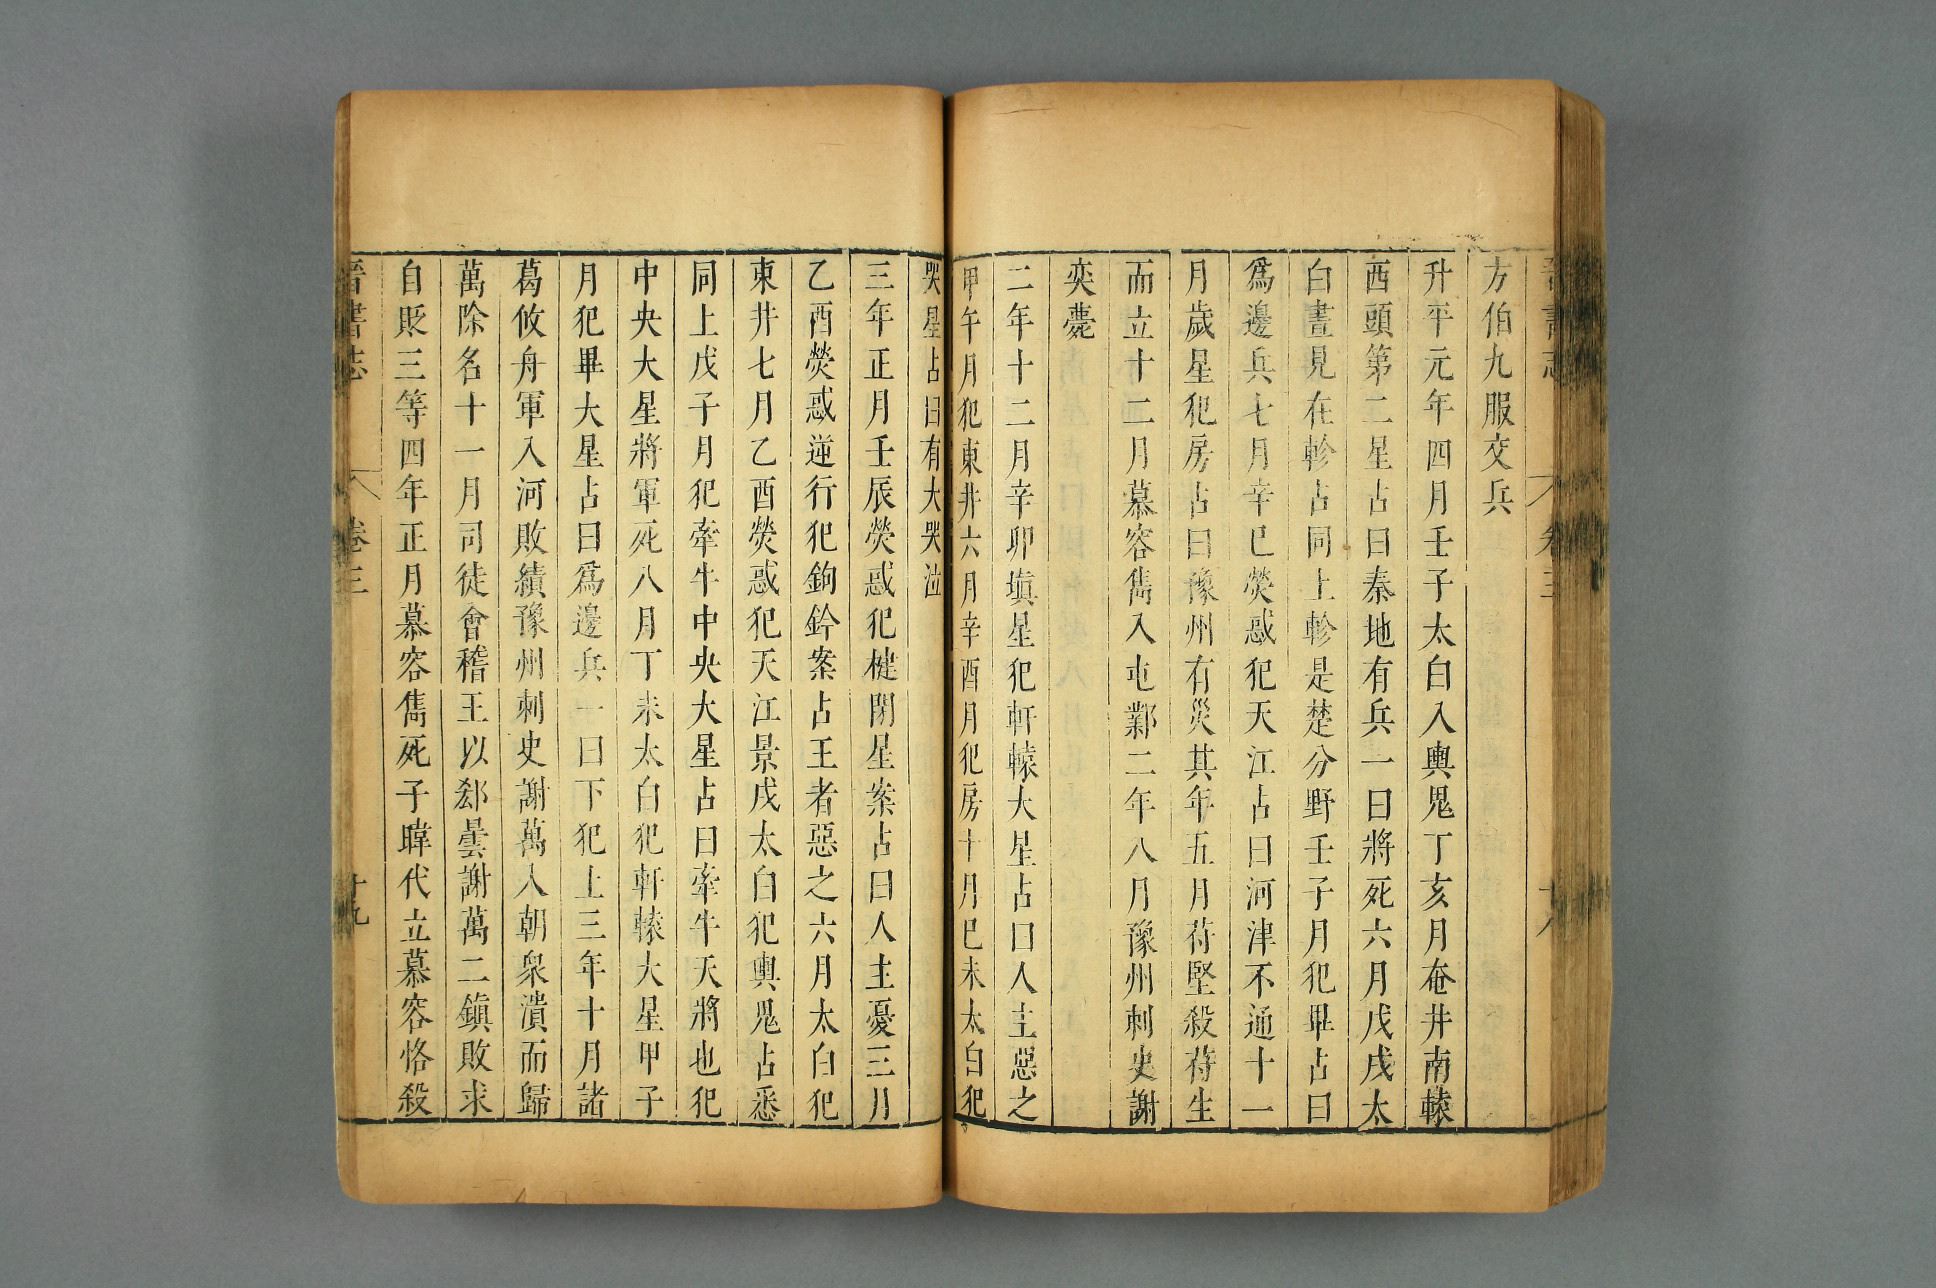 晉書志 卷三 十八
方伯九服交兵
升平元年四月壬子太白入輿鬼丁亥月奄井南轅
西頭第二星占曰秦地有兵一曰將死六月戊戌太
白晝見在軫占同上軫是楚分野壬子月犯畢占曰
爲邊兵七月辛巳熒惑犯天江占曰河津不通十一
月歲星犯房占曰豫州有災其年五月苻堅殺苻生
而立十二月慕容雋入屯鄴二年八月豫州刺史謝
奕薨
二年十二月辛卯塡星犯軒轅大星占曰人主惡之
甲午月犯東井六月辛酉月犯房十月己未太白犯
哭星占曰有大哭泣
三年正月壬辰熒惑犯楗閉星案占曰人主憂三月
乙酉熒惑逆行犯鉤鈐案占王者惡之六月太白犯
東井七月乙酉熒惑犯天江景戌太白犯輿鬼占悉
同上戊子月犯牽牛中央大星占曰牽牛天將也犯
中央大星將軍死八月丁未太白犯軒轅大星甲子
月犯畢大星占曰爲邊兵一曰下犯上三年十月諸
葛攸舟軍入河敗績豫州刺史謝萬入朝衆潰而歸
萬除名十一月司徒會稽王以郄曇謝萬二鎭敗求
自貶三等四年正月慕容雋死子暐代立慕容恪殺
晉書志 卷三 十九